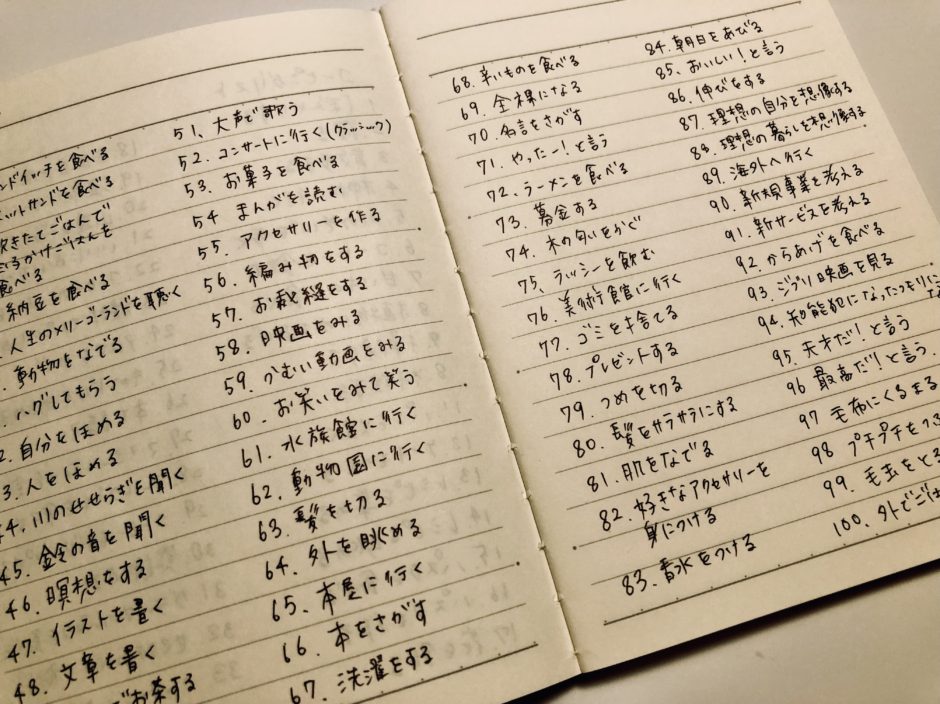 ンドイッチを食べる
ットサンドを食べる
炊きたてごはんで
まごかけごはんを
食べる
納豆を食べる
人生のメリーゴーランドを聴く
動物をなでる
ハグしてもらう
2. 自分をほめる
3. 人をほめる
44. 川のせせらぎを聞く
45. 鈴の音を聞く
46. 瞑想をする
47. イラストを書く
48. 文章を書く
でお茶する
51. 大声で歌う
52. コンサートに行く(クラッシック)
53. お菓子を食べる
54. まんがを読む
55. アクセサリーを作る
56. 編み物をする
57. お裁縫をする
58. 映画をみる
59. かわいい動画をみる
60. お笑いをみて笑う
61. 水族館に行く
62. 動物園に行く
63. 髪を切る
64. 外を眺める
65. 本屋に行く
66. 本をさがす
67. 洗濯をする
68. 辛いものを食べる
69. 全裸になる
70. 名言をさがす
71. やったー!と言う
72. ラーメンを食べる
73. 募金する
74. 木の匂いをかぐ
75. ラッシーを飲む
76. 美術館に行く
77. ゴミを捨てる
78. プレゼントする
79. つめを切る
80. 髪をサラサラにする
81. 肌をなでる
82. 好きなアクセサリーを
身につける
83. 香水をつける
84. 朝日をあびる
85. おいしい!と言う
86. 伸びをする
87. 理想の自分を想像する
88. 理想の暮らしを想像する
89. 海外へ行く
90. 新規事業を考える
91. 新サービスを考える
92. からあげを食べる
93. ジブリ映画を見る
94. 知能犯になったつもりに
95. 天才だ!と言う
96. 最高だ!と言う
97. 毛布にくるまる
98. プチプチをつぶ
99. 毛玉をとる
100. 外でごは